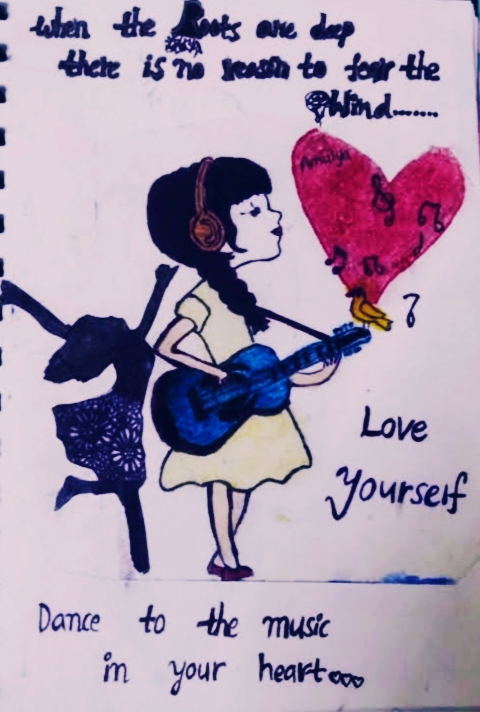 when the Roots are deep
there is no reason to fear the
Wind.......
Amulya
Love
Yourself
Dance to the music
in your heart